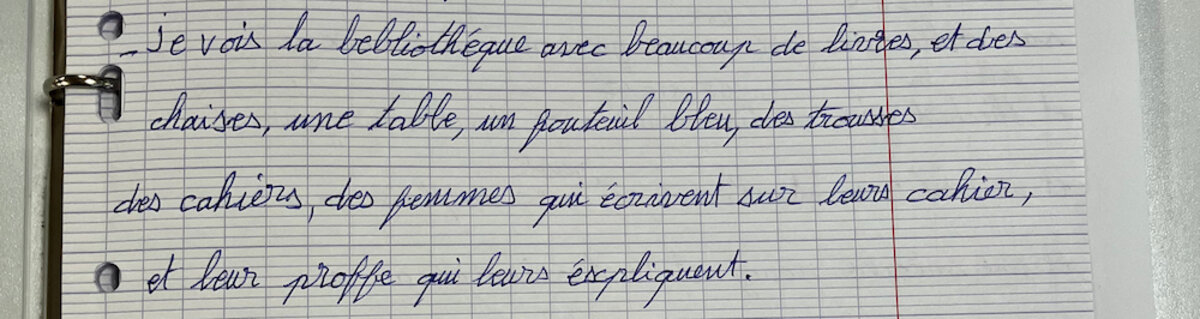 - Je vois la bebliothéque avec beaucoup de livres, et des
chaises, une table, un fouteuil bleu, des trousses
des cahiers, des femmes qui écrivent sur leurs cahier,
et leur proffe qui leurs éspliquent.